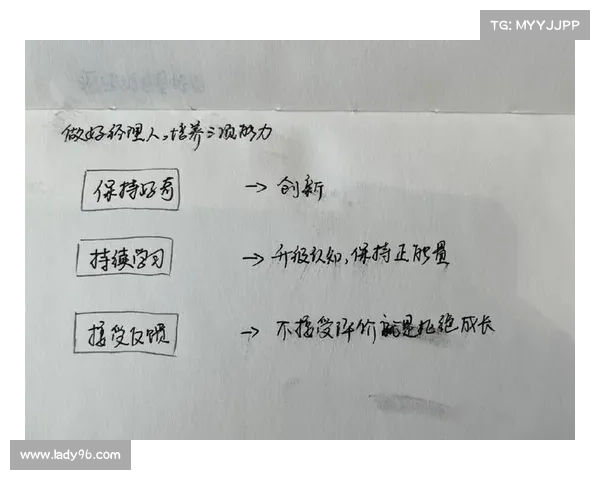 TG: MYYJJPP
做好经理人，培养三项能力
保持好奇 → 创新
持续学习 → 升级认知，保持正能量
接受反馈 → 不接受评价就是拒绝成长
www.lady96.com